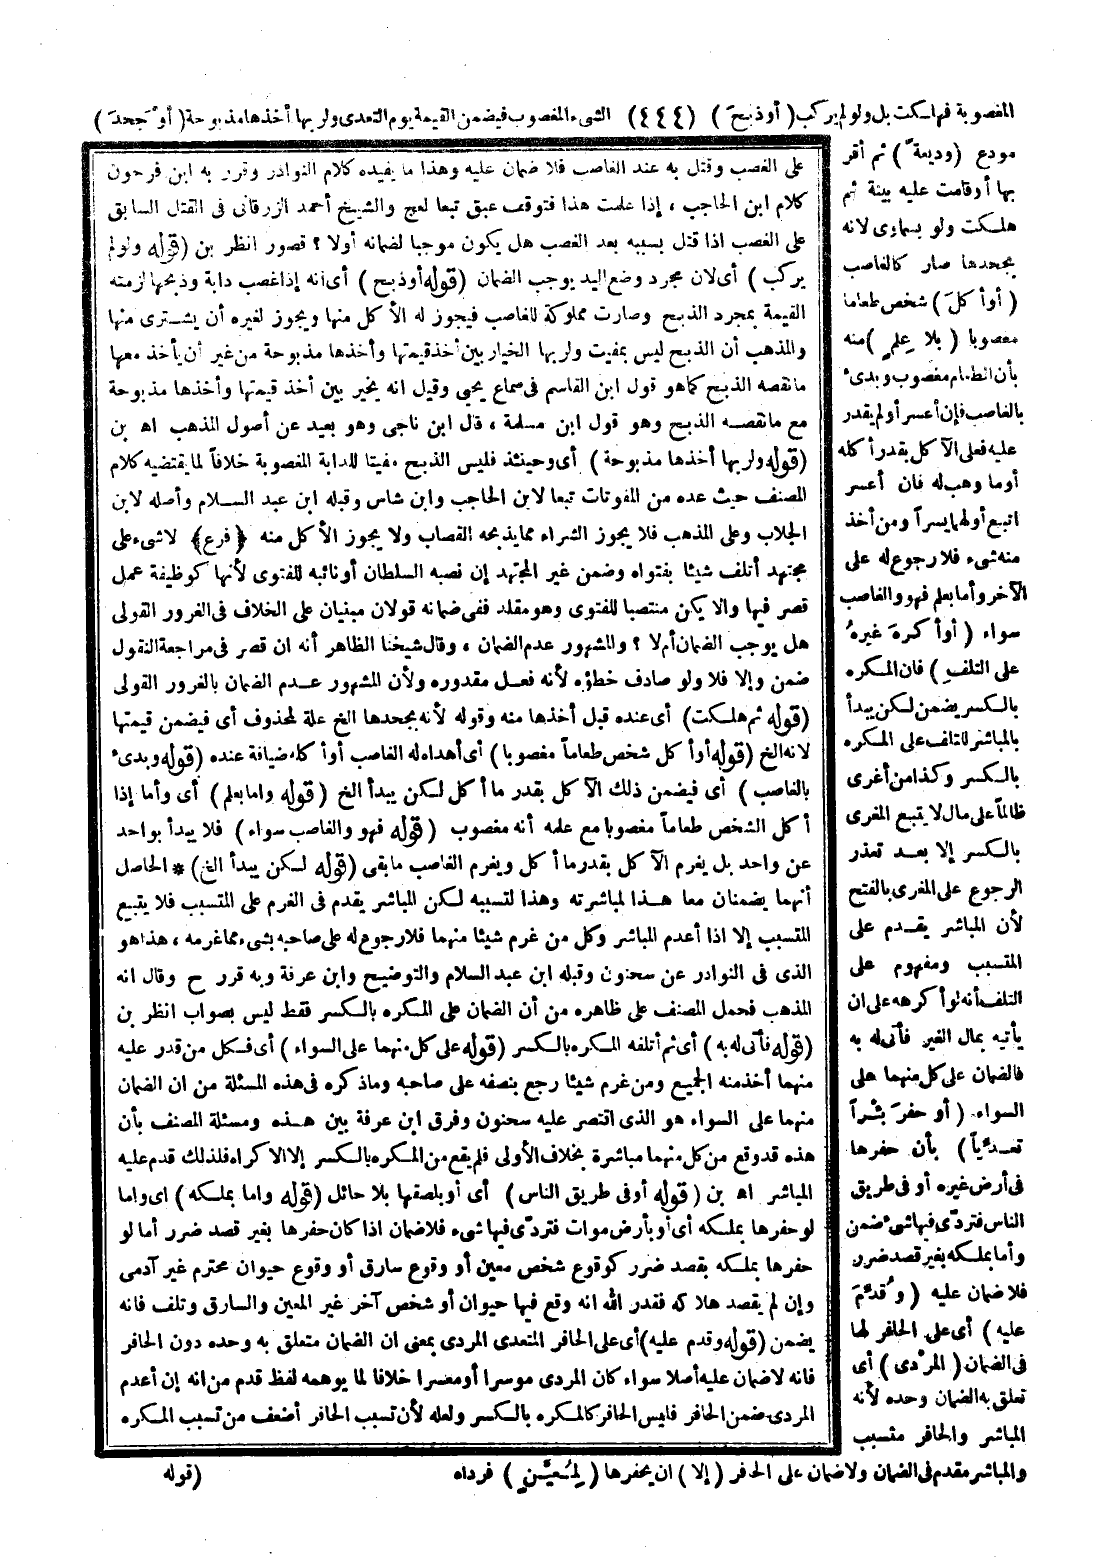 المغصوبة فهلكت بل ولو لم يركب (أو ذبحَ) (٤٤٤) الشىء المغصوب فيضمن القيمة يوم التعدى ولربها أخذها مذبوحة (أو جَحدَ)
مودع (وديعةً) ثم أقر
بها أو قامت عليه بينة ثم
هلكت ولو بسماوى لانه
بجحدها صار كالغاصب
(أو أكلَ) شخص طعاما
مغصوبا (بلا عِلمٍ) منه
بأن الطعام مغصوب وبدىء
بالغاصب فإن أعسر أو لم يقدر
عليه فعلى الآكل بقدر أكله
أو ما وهب له فان أعسر
اتبع أولهما يسراً ومن أخذ
منه شىء فلا رجوع له على
الآخر وأما بعلم فهو والغاصب
سواء (أو أكرهَ غيرهُ
على التلفِ) فان المكره
بالكسر يضمن لكن يبدأ
بالمباشر للتلف على المكره
بالكسر وكذا من أغرى
ظالماً على مال لا يتبع المغرى
بالكسر إلا بعد تعذر
الرجوع على المغرى بالفتح
لأن المباشر يقدم على
المتسبب ومفهوم على
التلف أنه لو أكرهه على ان
يأتيه بمال الغير فأتى له به
فالضمان على كل منهما على
السواء (أو حفرَ بئراً
تعدّياً) بأن حفرها
فى أرض غيره أو فى طريق
الناس فتردّى فيها شىء ضمن
وأما بملكه بغير قصد ضرر
فلا ضمان عليه (وقُدّمَ
عليه) أى على الحافر لها
فى الضمان (المردى) أى
تعلق به الضمان وحده لأنه
المباشر والحافر متسبب
والمباشر مقدم فى الضمان ولا ضمان على الحافر (إلا) ان يحفرها (لمُعيَّنٍ) فرداه
على الغصب وقتل به عند الغاصب فلا ضمان عليه وهذا ما يفيده كلام النوادر وقرر به ابن فرحون
كلام ابن الحاجب ، إذا علمت هذا فتوقف عبق تبعا لعج والشيخ أحمد الزرقانى فى القتل السابق
على الغصب اذا قتل بسببه بعد الغصب هل يكون موجبا لضمانه أولا ؟ قصور انظر بن (قوله ولو لم
يركب) أى لان مجرد وضع اليد يوجب الضمان (قوله أو ذبح) أى انه إذا غصب دابة وذبحها لزمته
القيمة بمجرد الذبح وصارت مملوكة للغاصب فيجوز له الأكل منها ويجوز لغيره أن يشترى منها
والمذهب أن الذبح ليس بمفيت ولربها الخيار بين أخذ قيمتها وأخذها مذبوحة من غير أن يأخذ معها
ما نقصه الذبح كما هو قول ابن القاسم فى سماع يحيى وقيل انه يخير بين أخذ قيمتها وأخذها مذبوحة
مع ما نقصه الذبح وهو قول ابن مسلمة ، قال ابن ناجى وهو بعيد عن أصول المذهب اه بن
(قوله ولربها أخذها مذبوحة) أى وحينئذ فليس الذبح مفيتا للدابة المغصوبة خلافاً لما يقتضيه كلام
المصنف حيث عده من المفوتات تبعا لابن الحاجب وابن شاس وقبله ابن عبد السلام وأصله لابن
الجلاب وعلى المذهب فلا يجوز الشراء مما يذبحه القصاب ولا يجوز الأكل منه ﴿فرع﴾ لا شىء على
مجتهد أتلف شيئا بفتواه وضمن غير المجتهد إن نصبه السلطان أو نائبه للفتوى لأنها كوظيفة عمل
قصر فيها والا يكن منتصبا للفتوى وهو مقلد ففى ضمانه قولان مبنيان على الخلاف فى الغرور القولى
هل يوجب الضمان أم لا ؟ والمشهور عدم الضمان ، وقال شيخنا الظاهر أنه ان قصر فى مراجعة النقول
ضمن وإلا فلا ولو صادف خطؤه لأنه فعل مقدوره ولأن المشهور عدم الضمان بالغرور القولى
(قوله ثم هلكت) أى عنده قبل أخذها منه وقوله لأنه بجحدها الخ علة لمحذوف أى فيضمن قيمتها
لانه الخ (قوله أو أكل شخص طعاماً مغصوبا) أى أهداه له الغاصب أو أكله ضيافة عنده (قوله وبدىء
بالغاصب) أى فيضمن ذلك الآكل بقدر ما أكل لكن يبدأ الخ (قوله واما بعلم) أى وأما إذا
أكل الشخص طعاماً مغصوبا مع علمه أنه مغصوب (قوله فهو والغاصب سواء) فلا يبدأ بواحد
عن واحد بل يغرم الآكل بقدر ما أكل ويغرم الغاصب ما بقى (قوله لكن يبدأ الخ) * الحاصل
أنهما يضمنان معا هذا لمباشرته وهذا لتسببه لكن المباشر يقدم فى الغرم على المتسبب فلا يتبع
المتسبب إلا اذا أعدم المباشر وكل من غرم شيئا منهما فلا رجوع له على صاحبه بشىء مما غرمه ، هذا هو
الذى فى النوادر عن سحنون وقبله ابن عبد السلام والتوضيح وابن عرفة وبه قرر ح وقال انه
المذهب فحمل المصنف على ظاهره من أن الضمان على المكره بالكسر فقط ليس بصواب انظر بن
(قوله فأتى له به) أى ثم أتلفه المكره بالكسر (قوله على كل منهما على السواء) أى فكل من قدر عليه
منهما أخذ منه الجميع ومن غرم شيئا رجع بنصفه على صاحبه وما ذكره فى هذه المسئلة من ان الضمان
منهما على السواء هو الذى اقتصر عليه سحنون وفرق ابن عرفة بين هذه ومسئلة المصنف بأن
هذه قد وقع من كل منهما مباشرة بخلاف الأولى فلم يقع من المكره بالكسر إلا الاكراه فلذلك قدم عليه
المباشر اه بن (قوله أو فى طريق الناس) أى أو بلصقها بلا حائل (قوله واما بملكه) اى واما
لو حفرها بملكه أى أو بأرض موات فتردّى فيها شىء فلا ضمان اذا كان حفرها بغير قصد ضرر أما لو
حفرها بملكه بقصد ضرر كوقوع شخص معين أو وقوع سارق أو وقوع حيوان محترم غير آدمى
وإن لم يقصد هلاكه فقدر الله انه وقع فيها حيوان أو شخص آخر غير المعين والسارق وتلف فانه
يضمن (قوله وقدم عليه) أى على الحافر المتعدى المردى بمعنى ان الضمان متعلق به وحده دون الحافر
فانه لا ضمان عليه أصلا سواء كان المردى موسرا أو معسرا خلافا لما يوهمه لفظ قدم من انه إن أعدم
المردى ضمن الحافر فليس الحافر كالمكره بالكسر ولعله لأن تسبب الحافر أضعف من تسبب المكره
(قوله